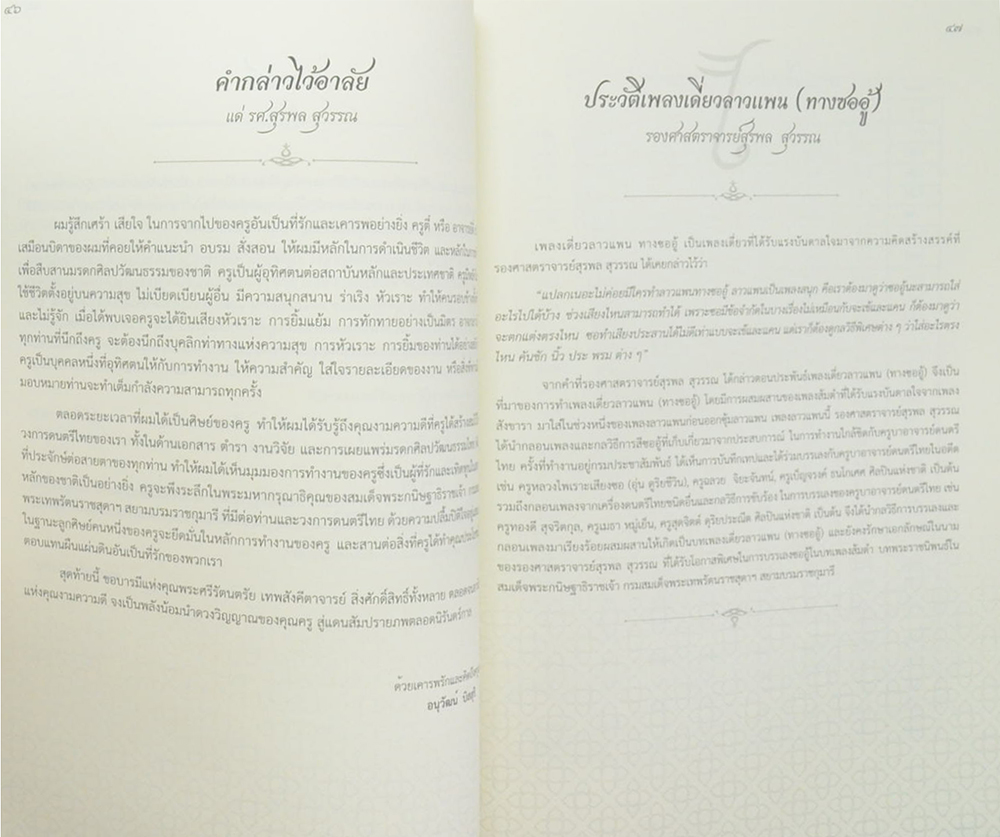 ๔๖
คำกล่าวไว้อาลัย
แด่ รศ.สุรพล สุวรรณ
ผมรู้สึกเศร้า เสียใจ ในการจากไปของครูอันเป็นที่รักและเคารพอย่างยิ่ง ครูดี่ หรือ
เสมือนบิดาของผมที่คอยให้คำแนะนำ อบรม สั่งสอน ให้ผมมีหลักในการดำเนินชีวิต และหลักในการ
เพื่อสืบสานมรดกศิลปวัฒนธรรมของชาติ ครูเป็นผู้อุทิศตนต่อสถาบันหลักและประเทศชาติ
ใช้ชีวิตตั้งอยู่บนความสุข ไม่เบียดเบียนผู้อื่น มีความสนุกสนาน ร่าเริง หัวเราะ ทำให้คนรอบข้าง
และไม่รู้จัก เมื่อได้พบเจอครูจะได้ยินเสียงหัวเราะ การยิ้มแย้ม การทักทายอย่างเป็นมิตร
ทุกท่านที่นึกถึงครู จะต้องนึกถึงบุคลิกท่าทางแห่งความสุข การหัวเราะ การยิ้มของท่านได้อย่าง
ครูเป็นบุคคลหนึ่งที่อุทิศตนให้กับการทำงาน ให้ความสำคัญ ใส่ใจรายละเอียดของงาน หรือสิ่งที่
มอบหมายท่านจะทำเต็มกำลังความสามารถทุกครั้ง
ตลอดระยะเวลาที่ผมได้เป็นศิษย์ของครู ทำให้ผมได้รับรู้ถึงคุณงามความดีที่ครูได้สร้าง
วงการดนตรีไทยของเรา ทั้งในด้านเอกสาร ตำรา งานวิจัย และการเผยแพร่มรดกศิลปวัฒนธรรมไทย
ที่ประจักษ์ต่อสายตาของทุกท่าน ทำให้ผมได้เห็นมุมมองการทำงานของครูซึ่งเป็นผู้ที่รักและเทิดทูน
หลักของชาติเป็นอย่างยิ่ง ครูจะพึงระลึกในพระมหากรุณาธิคุณของสมเด็จพระกนิษฐาธิราชเจ้า
พระเทพรัตนราชสุดาฯ สยามบรมราชกุมารี ที่มีต่อท่านและวงการดนตรีไทย ด้วยความปลื้มปีติ
ในฐานะลูกศิษย์คนหนึ่งของครูจะยึดมั่นในหลักการทำงานของครู และสานต่อสิ่งที่ครูได้ทำคุณประโยชน์
ตอบแทนผืนแผ่นดินอันเป็นที่รักของพวกเรา
สุดท้ายนี้ ขอบารมีแห่งคุณพระศรีรัตนตรัย เทพสังคีตาจารย์ สิ่งศักดิ์สิทธิ์ทั้งหลาย
แห่งคุณงามความดี จงเป็นพลังน้อมนำดวงวิญญาณของคุณครู สู่แดนสัมปรายภพตลอดนิรันดร์กาล
ด้วยเคารพรักและคิดถึง
อนุวัฒน์
๔๗
ประวัติเพลงเดี่ยวลาวแพน (ทางซออู้)
รองศาสตราจารย์สุรพล สุวรรณ
เพลงเดี่ยวลาวแพน ทางซออู้ เป็นเพลงเดี่ยวที่ได้รับแรงบันดาลใจมาจากความคิดสร้างสรรค์ที่
รองศาสตราจารย์สุรพล สุวรรณ ได้เคยกล่าวไว้ว่า
"แปลกเนอะไม่ค่อยมีใครทำลาวแพนทางซออู้ ลาวแพนเป็นเพลงสนุก คือเราต้องมาดูว่าซออู้นะสามารถใส่
อะไรไปได้บ้าง ช่วงเสียงไหนสามารถทำได้ เพราะซอมีข้อจำกัดในบางเรื่องไม่เหมือนกับจะเข้และแคน ก็ต้องมาดูว่า
จะตกแต่งตรงไหน ซอทำเสียงประสานได้ไม่ดีเท่าแบบจะเข้และแคน แต่เราก็ต้องดูกลวิธีพิเศษต่าง ๆ ว่าใส่อะไรตรง
ไหน คันชัก นิ้ว ประ พรม ต่าง ๆ"
จากคำที่รองศาสตราจารย์สุรพล สุวรรณ ได้กล่าวตอนประพันธ์เพลงเดี่ยวลาวแพน (ทางซออู้) จึงเป็น
ที่มาของการทำเพลงเดี่ยวลาวแพน (ทางซออู้) โดยมีการผสมผสานของเพลงส้มตำที่ได้รับแรงบันดาลใจจากเพลง
สังขารา มาใส่ในช่วงหนึ่งของเพลงลาวแพนก่อนออกซุ้มลาวแพน เพลงลาวแพนนี้ รองศาสตราจารย์สุรพล สุวรรณ
ได้นำกลอนเพลงและกลวิธีการสีซออู้ที่เก็บเกี่ยวมาจากประสบการณ์ ในการทำงานใกล้ชิดกับครูบาอาจารย์ดนตรี
ไทย ครั้งที่ทำงานอยู่กรมประชาสัมพันธ์ ได้เห็นการบันทึกเทปและได้ร่วมบรรเลงกับครูบาอาจารย์ดนตรีไทยในอดีต
เช่น ครูหลวงไพเราะเสียงซอ (อุ่น ดูริยชีวิน), ครูฉลวย จิยะจันทน์, ครูเบ็ญจรงค์ ธนโกเศศ ศิลปินแห่งชาติ เป็นต้น
รวมถึงกลอนเพลงจากเครื่องดนตรีไทยชนิดอื่นและกลวิธีการขับร้อง ในการบรรเลงของครูบาอาจารย์ดนตรีไทย เช่น
ครูทองดี สุจริตกุล, ครูเมธา หมู่เย็น, ครูสุดจิตต์ ดุริยประณีต ศิลปินแห่งชาติ เป็นต้น จึงได้นำกลวิธีการบรรเลงและ
กลอนเพลงมาเรียงร้อยผสมผสานให้เกิดเป็นบทเพลงเดี่ยวลาวแพน (ทางซออู้) และยังคงรักษาเอกลักษณ์ในนาม
ของรองศาสตราจารย์สุรพล สุวรรณ ที่ได้รับโอกาสพิเศษในการบรรเลงซออู้ในบทเพลงส้มตำ บทพระราชนิพนธ์ใน
สมเด็จพระกนิษฐาธิราชเจ้า กรมสมเด็จพระเทพรัตนราชสุดาฯ สยามบรมราชกุมารี